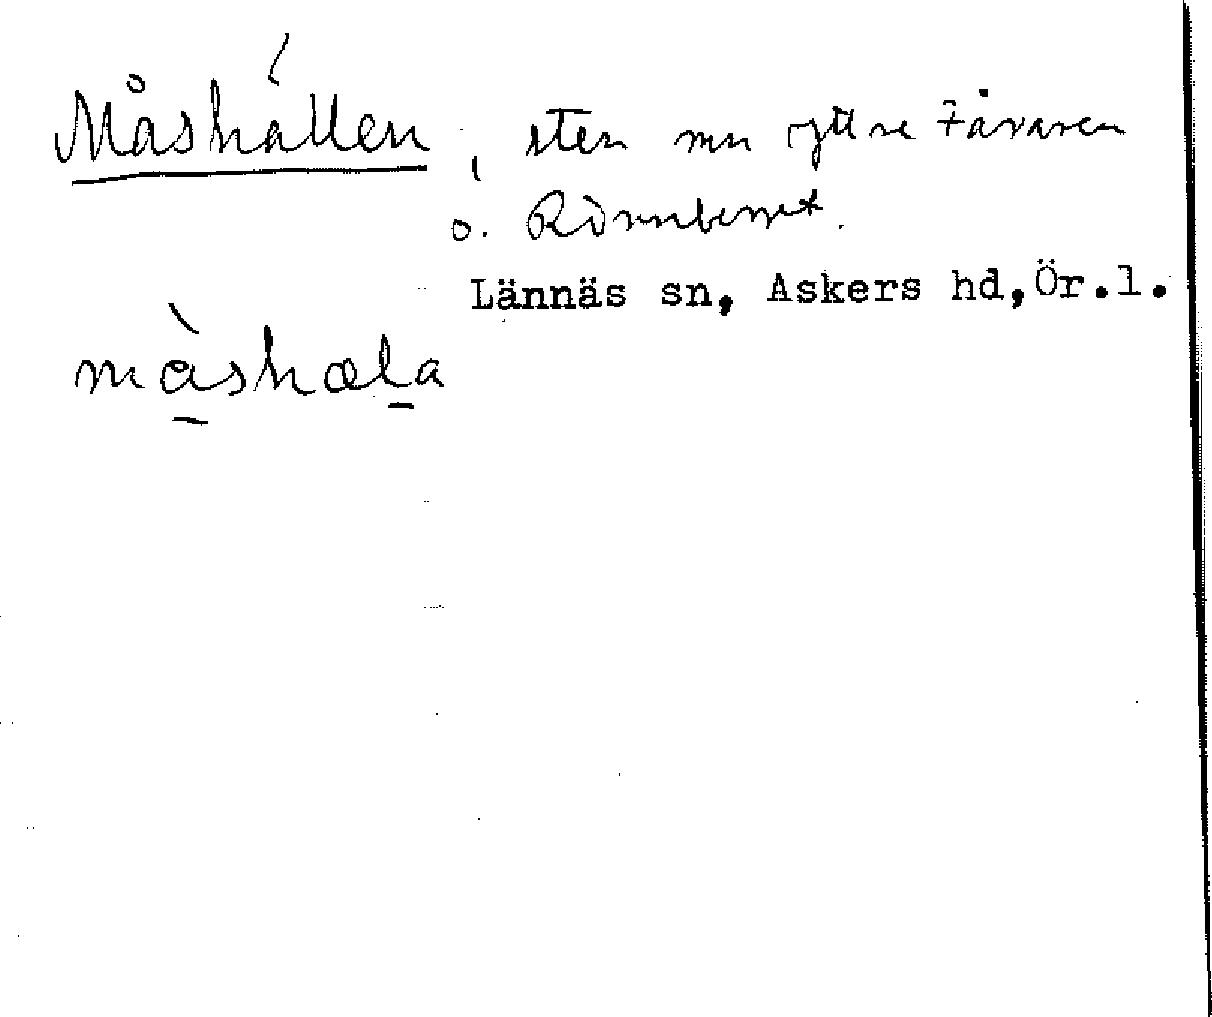 Måshällen, sten mn yttre Tåvaren
o. Rönnberget.
Lännäs sn, Askers hd, Ör.l.
måshæla